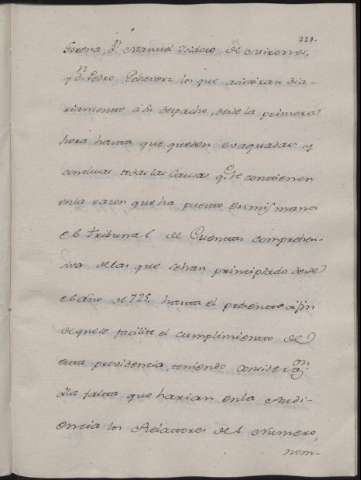 229.
Lorena, Dn. Manuel Isidoro de Mirones,
y Dn. Pedro Echeverz los que asistiran dia-
riamente a su despacho, desde la primera
hora hasta que queden evaquadas, y
conclusas todas las Causas qe. se contienen
en la razon que ha puesto en mis manos
el Tribunal de Cuentas comprehen-
siva de las que se han principiado desde
el año de 725, hasta el presente a fin
de que se facilite el cumplimiento de
esta providencia, teniendo consideraon.
a la falta que harian en la Audi-
encia los Relatores de el Numero,
nom-